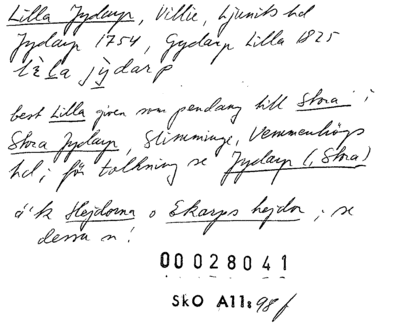 Lilla Jydarp, Villie, Ljunits hd
Jydarp 1754, Gydarp Lilla 1825
lèla jỳdarp
best Lilla given som pendang till Stora i
Stora Jydarp, Slimminge, Vemmenhögs
hd; för tolkning se Jydarp (, Stora)
ä'k Hejdorna o Ekarps hejdor; se
dessa n!
00028041
SkO All: 98 f